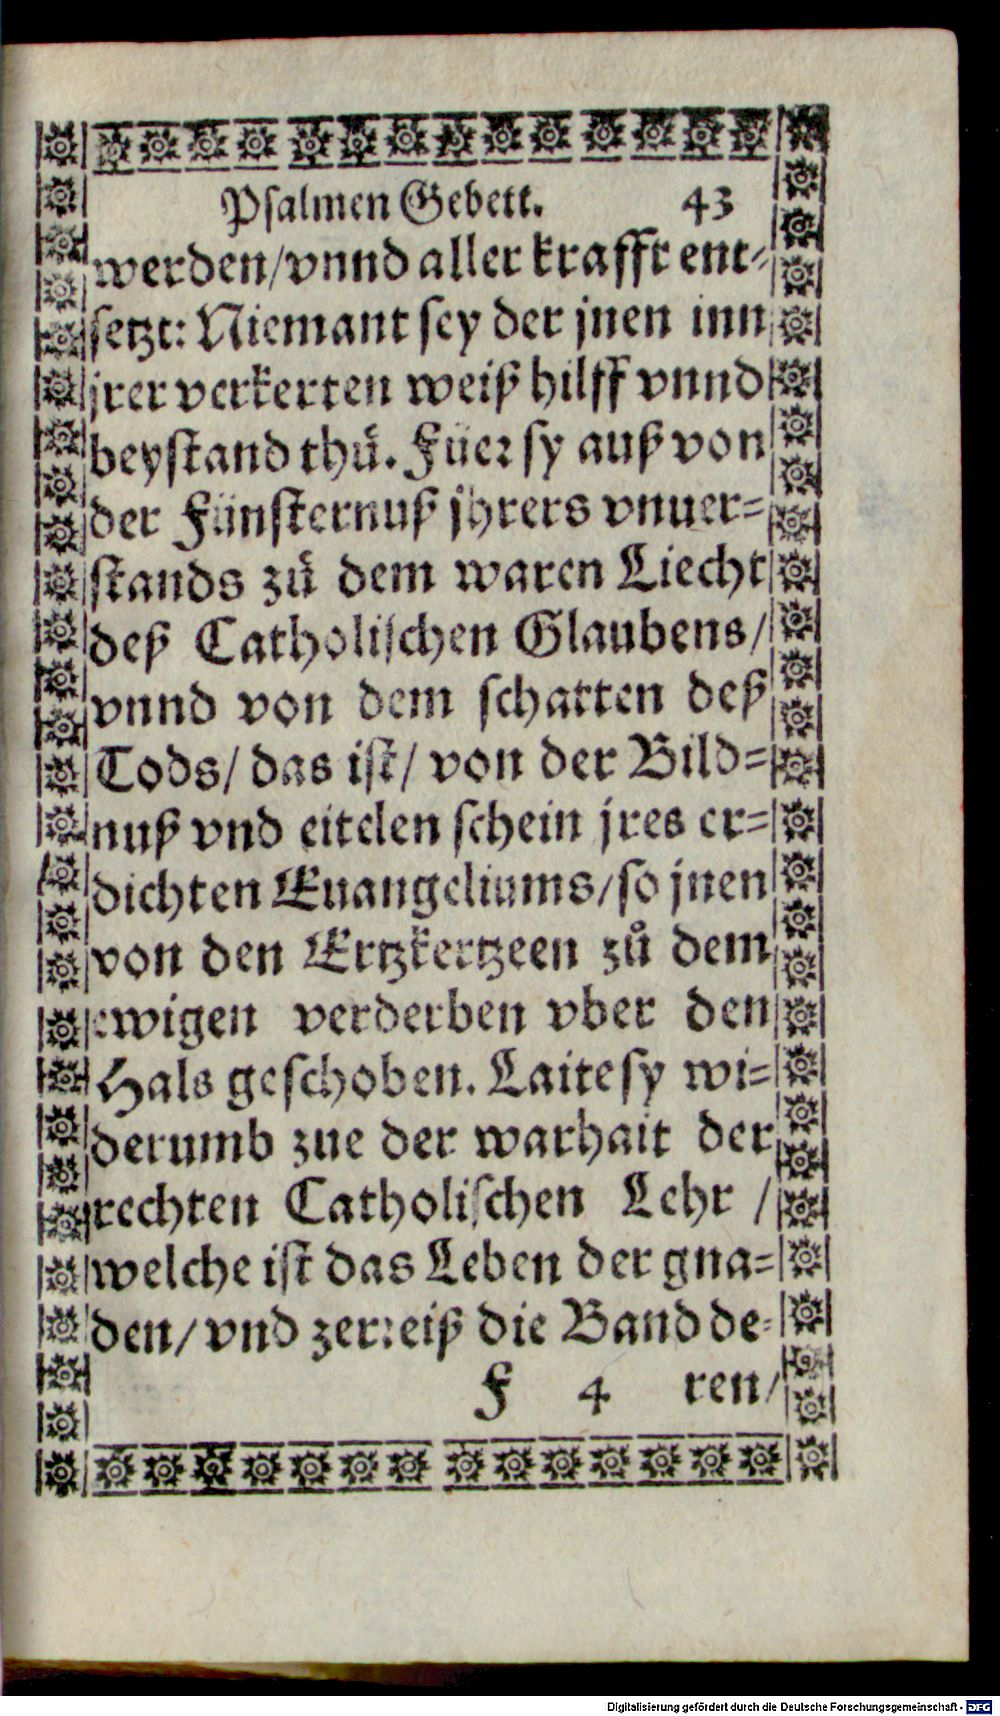 Psalmen Gebett. 43
werden/vnnd aller krafft ent-
setzt: Niemant sey der jnen inn
jrer verkerten weiß hilff vnnd
beystand thuͤ. Füer sy auß von
der Fünsternuß jhrers vnuer-
stands zuͤ dem waren Liecht
deß Catholischen Glaubens/
vnnd von dem schatten deß
Tods/ das ist/ von der Bild-
nuß vnd eitelen schein jres er-
dichten Euangeliums/so jnen
von den Ertzkertzeen zuͦ dem
ewigen verderben vber den
Hals geschoben. Laite sy wi-
derumb zue der warhait der
rechten Catholischen Lehr /
welche ist das Leben der gna-
den/ vnd zerreiß die Band de-
F 4 ren/
Digitalisierung gefördert durch die Deutsche Forschungsgemeinschaft - DFG